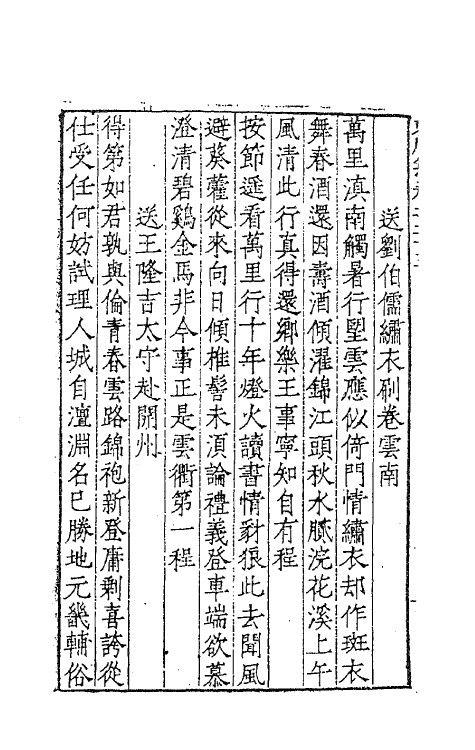 送劉伯儒繡衣刷卷雲南
萬里滇南觸暑行朢雲應似倚門情繡衣却作斑衣
舞春酒還因壽酒傾濯錦江頭秋水膩浣花溪上午
風清此行真得還鄉樂王事寧知自有程
按節遥看萬里行十年燈火讀書情豺狼此去聞風
避葵藿從來向日傾椎髻未湏論禮義登車端欲慕
澄清碧雞金馬非今事正是雲衢第一程
送王隆吉太守赴開州
得第如君孰與倫青春雲路錦袍新登庸剰喜誇從
仕受任何妨試理人城自澶淵名已勝地元畿輔俗